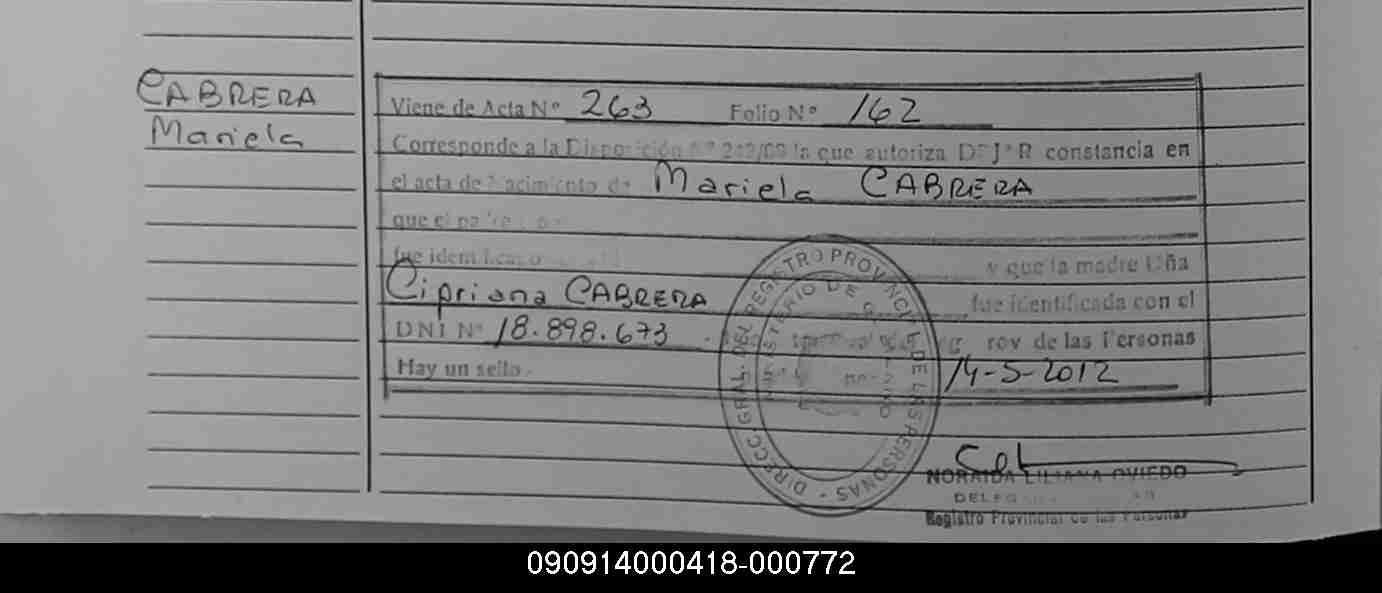 CABRERA
Mariela
Viene de Acta Nº 263 Folio Nº 162
Corresponde a la Disposición Nº 242/09 la que autoriza DEJAR constancia en
el acta de Nacimiento de Mariela CABRERA
que el padre
fue identificado
y que la madre Dña
Cipriana CABRERA fue identificada con el
DNI Nº 18.898.673 de las Personas
Hay un sello. 14-5-2012
DIRECC. GRAL. DEL REGISTRO PROVINCIAL DE LAS PERSONAS
MINISTERIO DE
NORAIDA LILIANA OVIEDO
Registro Provincial de las Personas
090914000418-000772